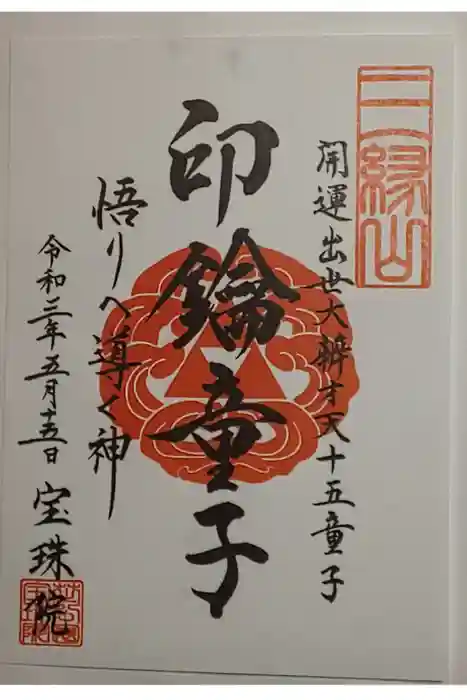 三縁山
開運出世大辨才天十五童子
印鑰童子
悟りへ導く神
令和三年五月十五日
宝珠院